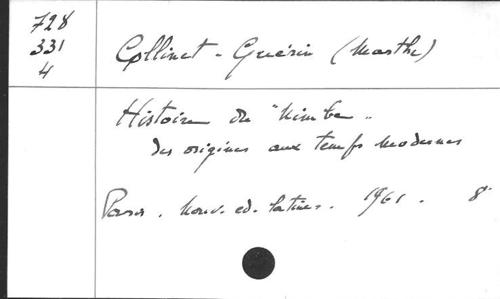 728
331
4
Collinet - Guérin (Marthe)
Histoire du "Nimbe"
des origines aux temps modernes
Paris. Nouv. ed. latines. 1961. 8°